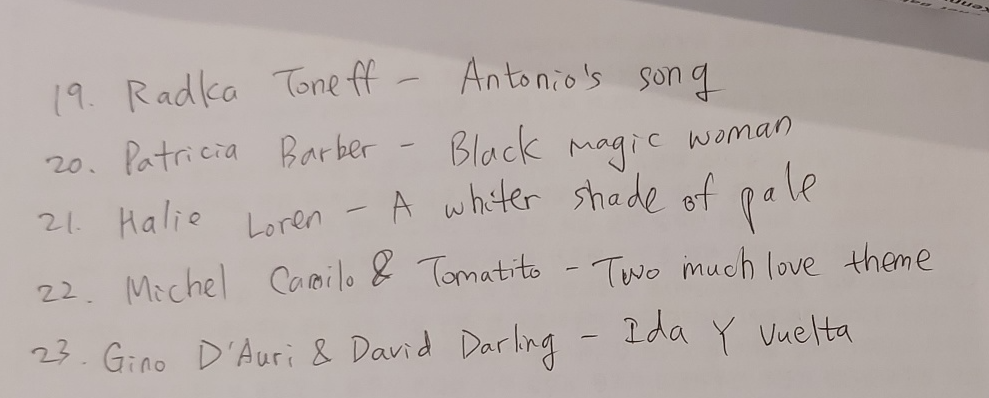 19. Radka Toneff - Antonio's song
20. Patricia Barber - Black magic woman
21. Halie Loren - A whiter shade of pale
22. Michel Camilo & Tomatito - Two much love theme
23. Gino D'Auri & David Darling - Ida Y Vuelta